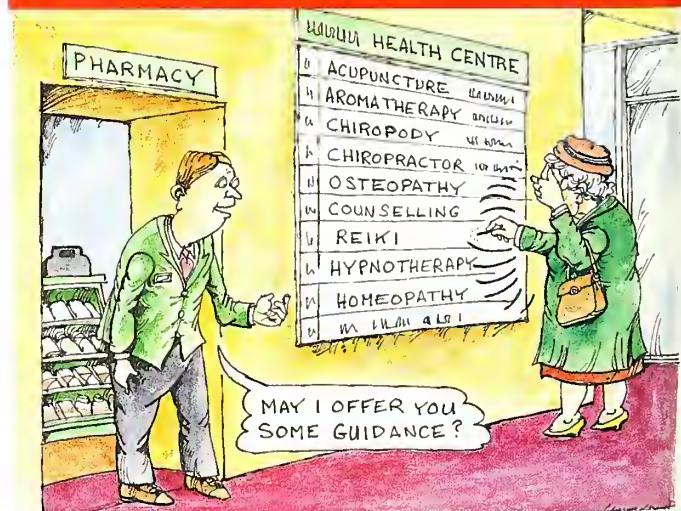 PHARMACY
HEALTH CENTRE
ACUPUNCTURE
AROMATHERAPY
CHIROPODY
CHIROPRACTOR
OSTEOPATHY
COUNSELLING
REIKI
HYPNOTHERAPY
HOMEOPATHY
MAY I OFFER YOU
SOME GUIDANCE?